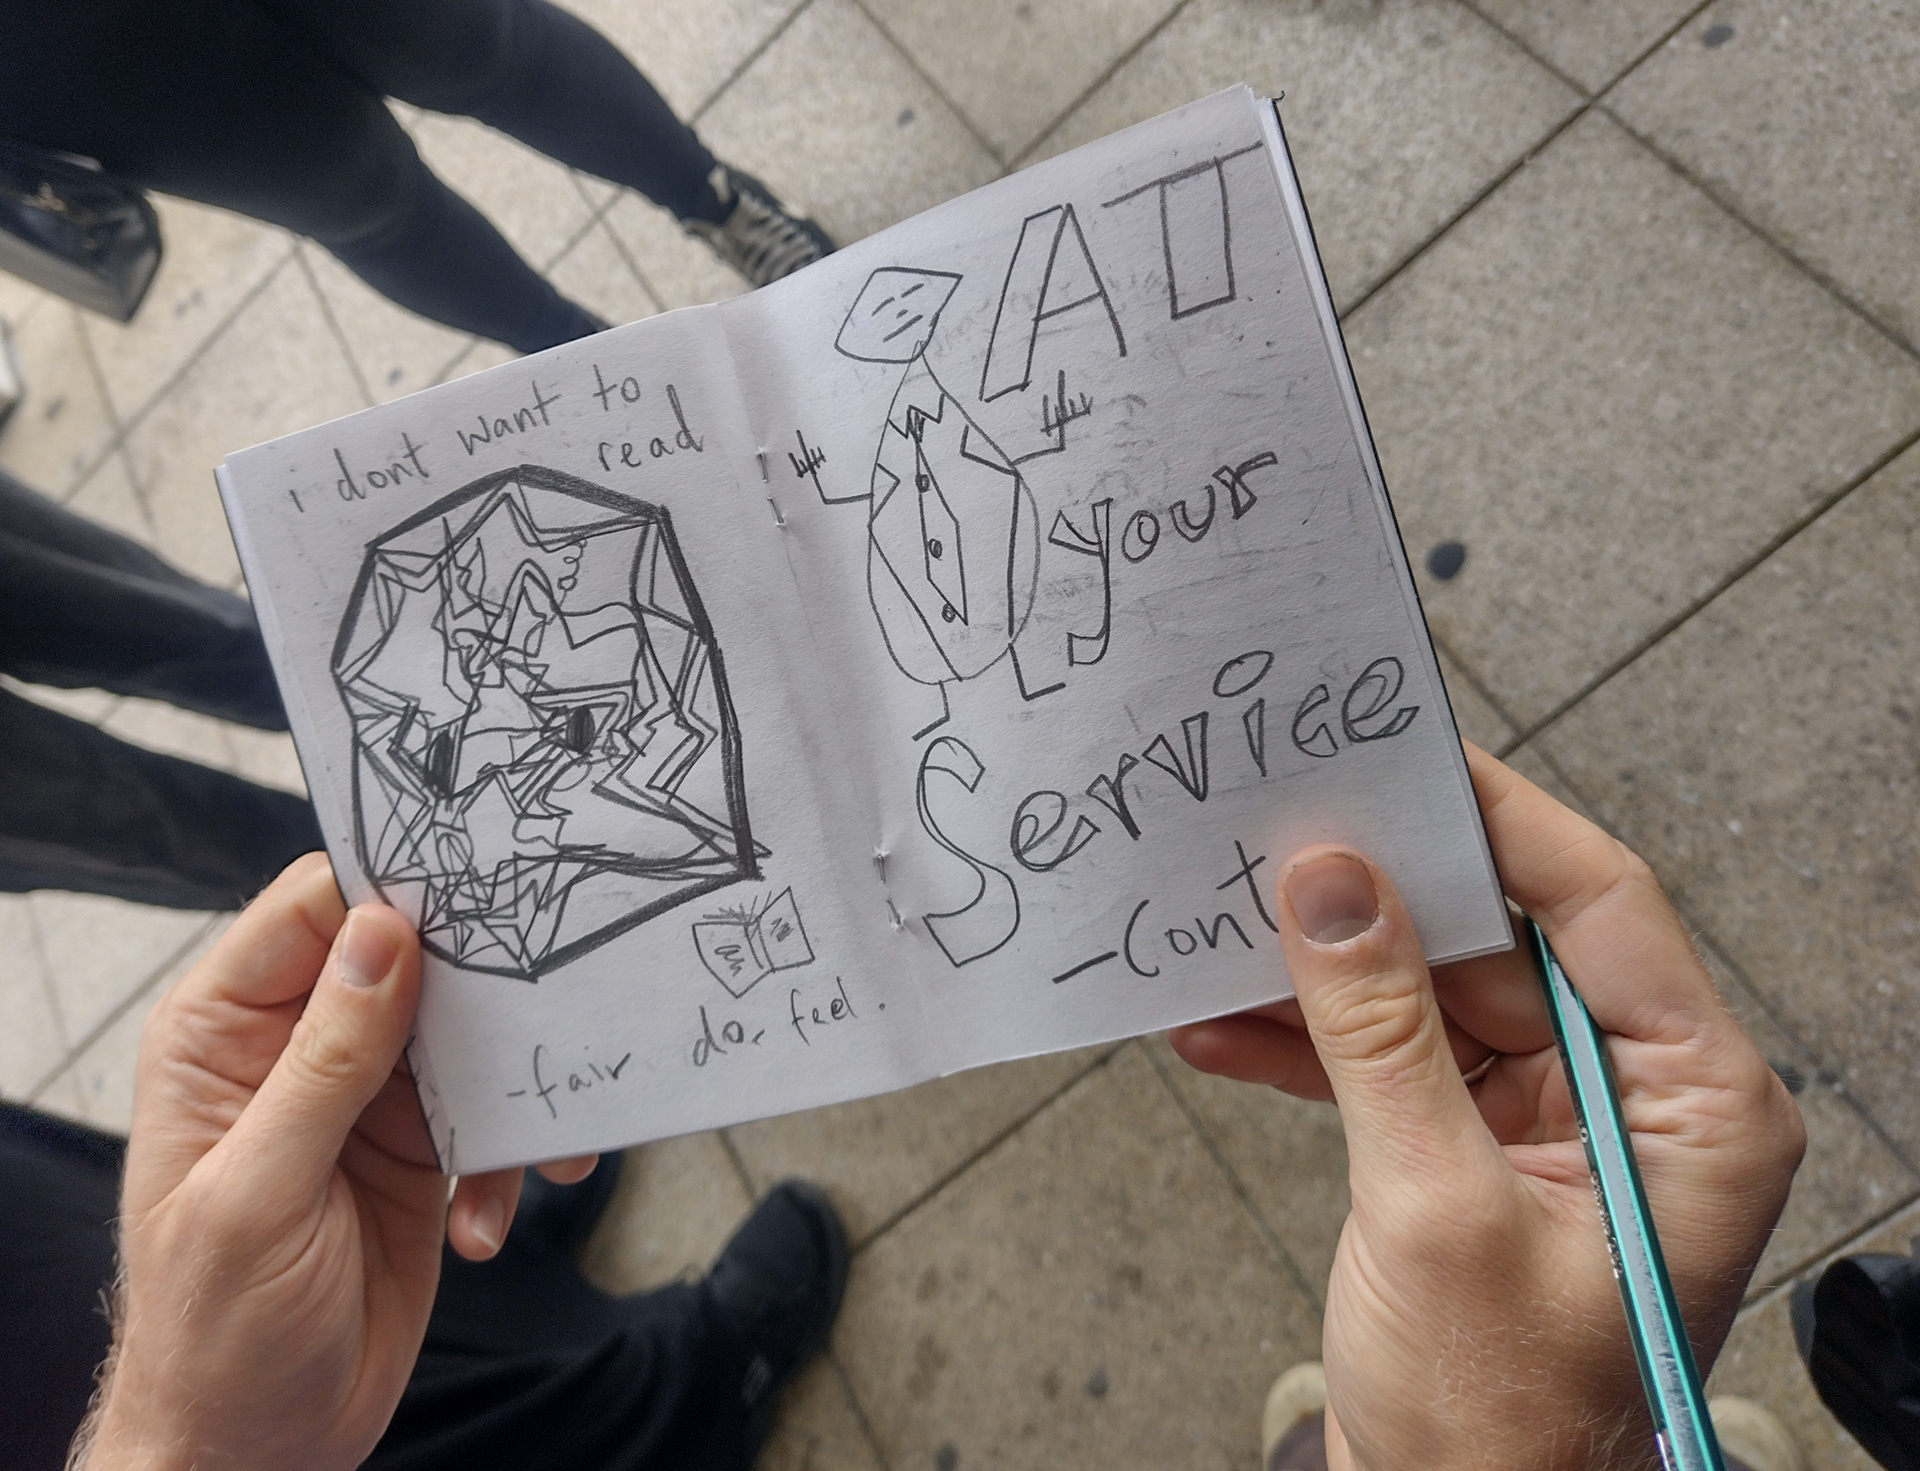 i dont want to
read
-fair do. feel.
AT
your
Service
-Cont